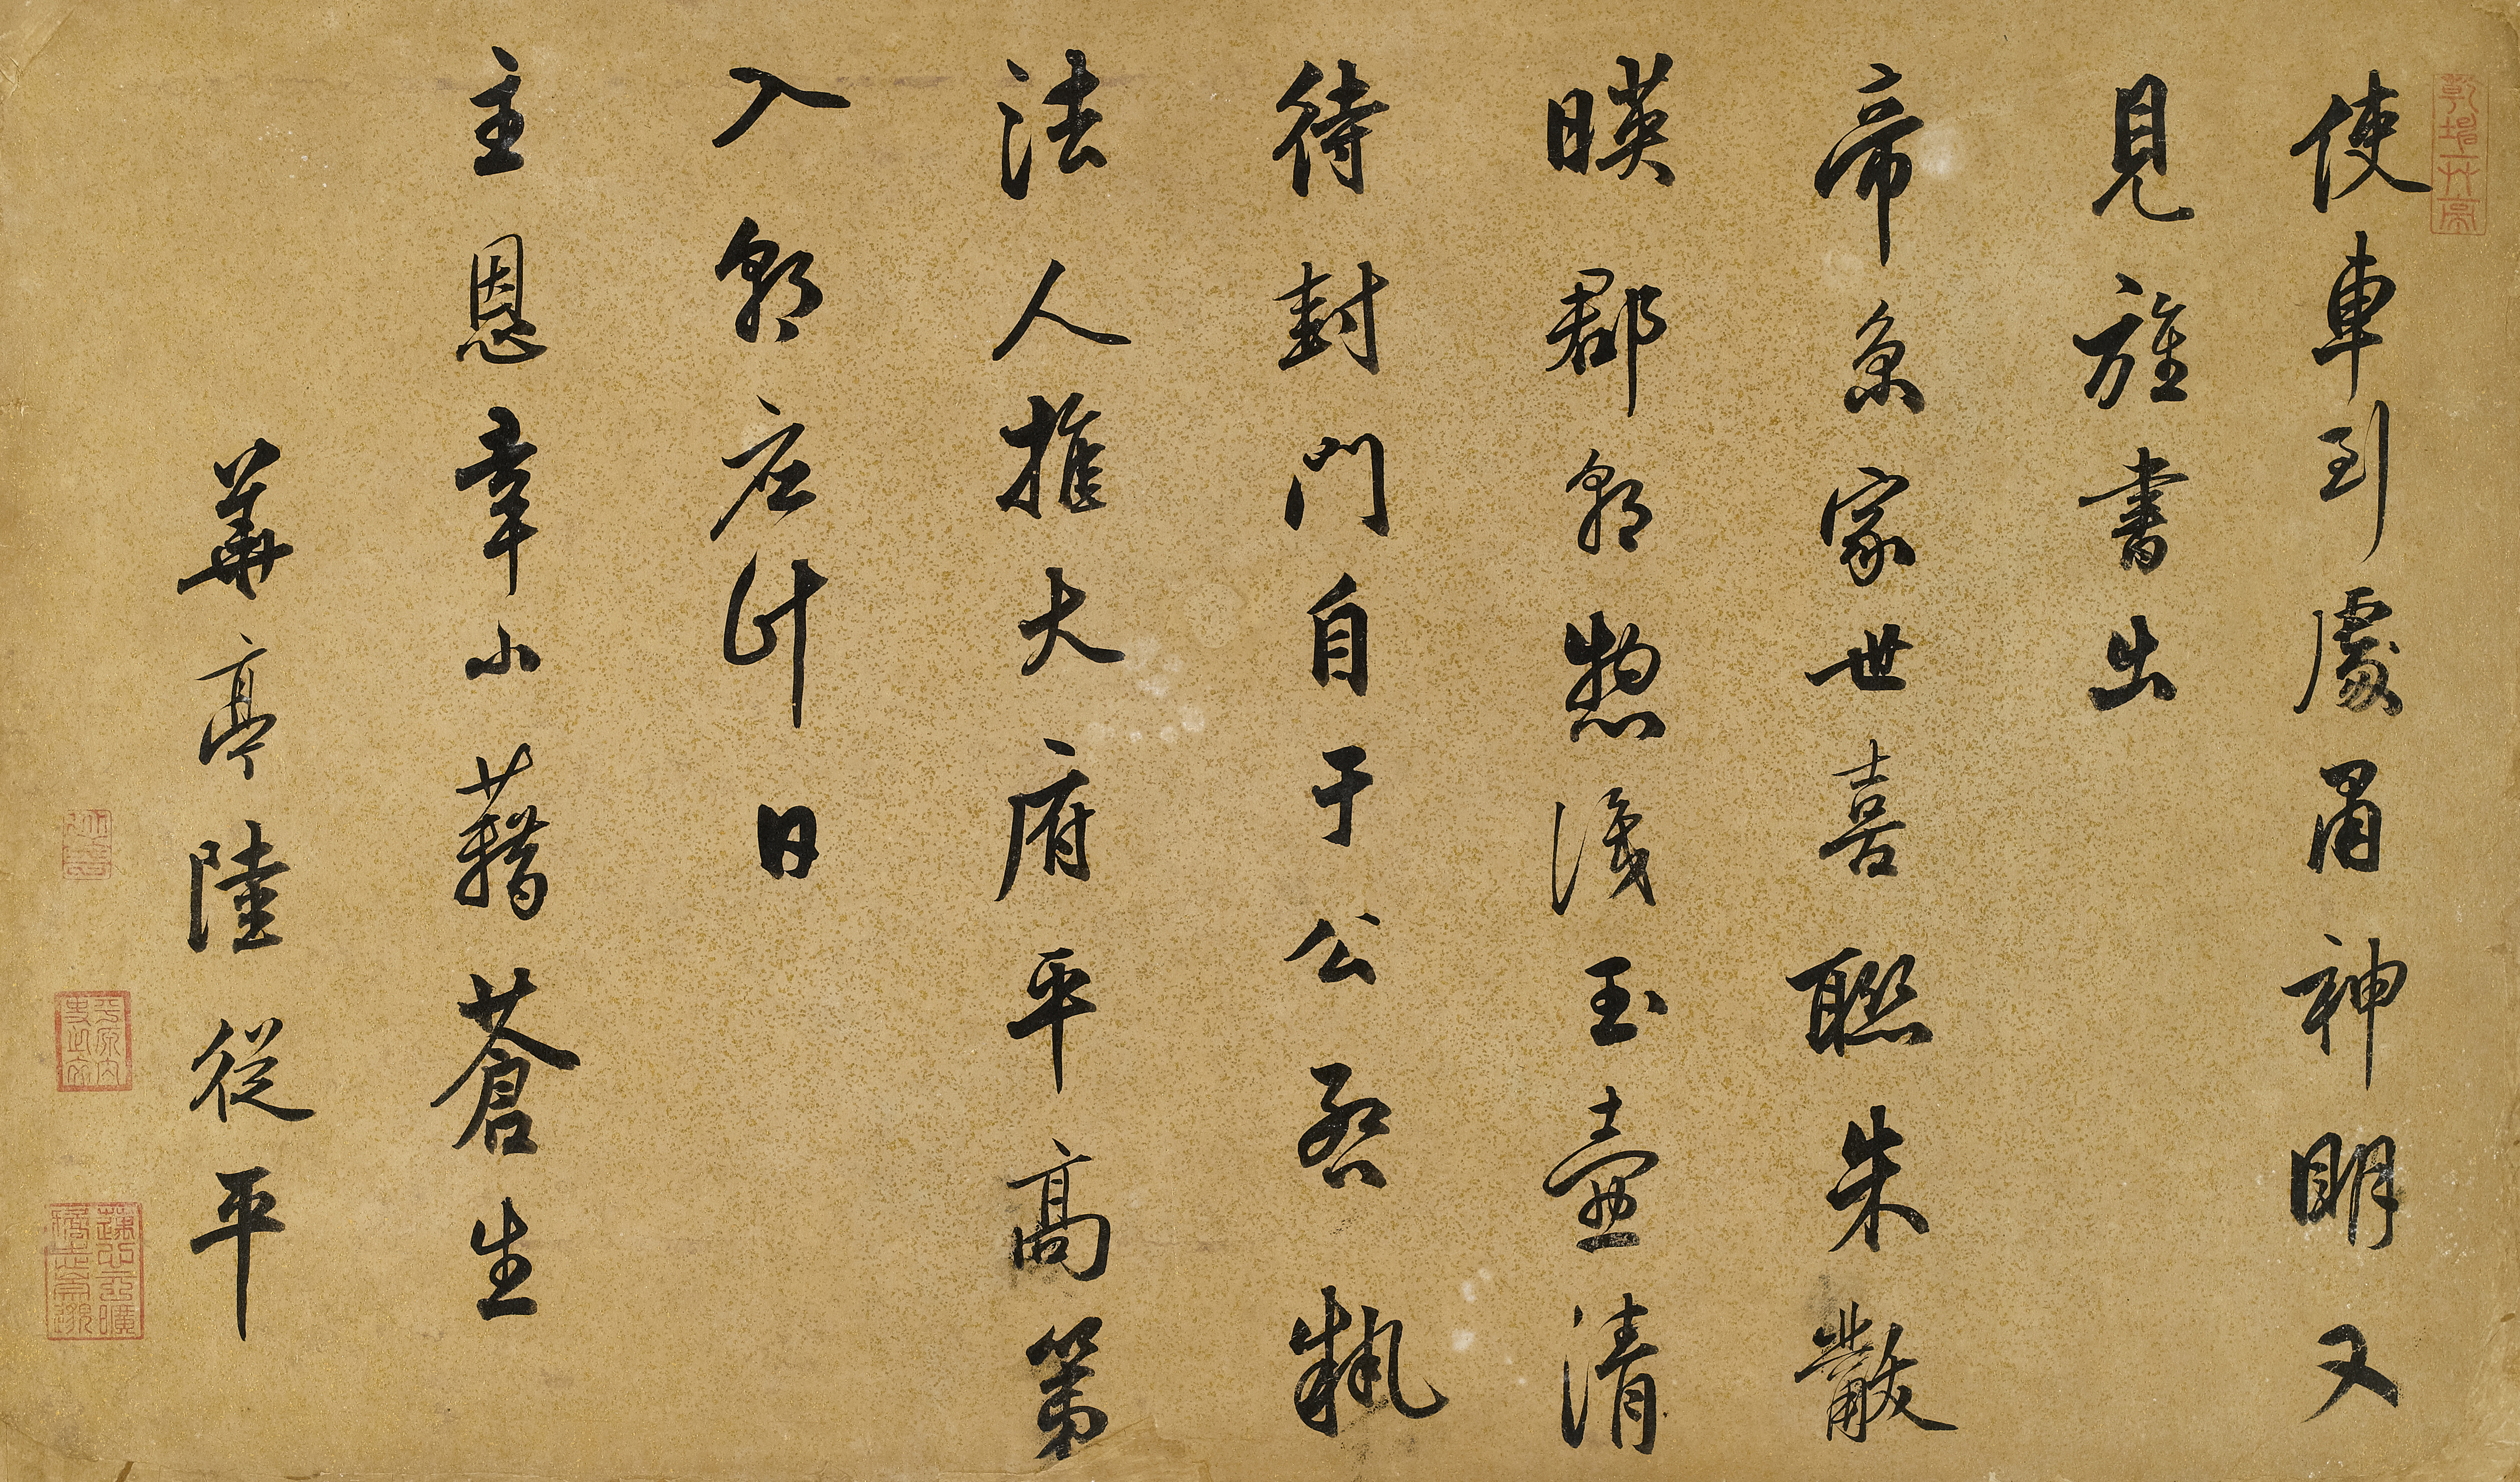 使車到處甬神明又
見旌書出
帝京家世喜聯朱黻
暎郡朝愁淺玉壺清
待封門自于公啟執
法人推大府平高第
入朝应計日
主恩幸小藉蒼生
華亭陸從平